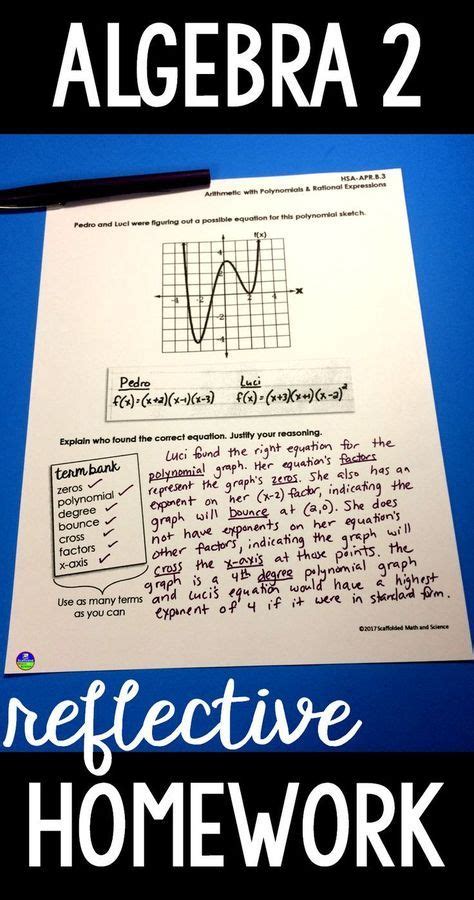 ALGEBRA 2
HSA-APR.B.3
Arithmetic with Polynomials & Rational Expressions
Pedro and Luci were figuring out a possible equation for this polynomial sketch.
f(x)
4
x
-4 -2 2 4
-4
Pedro Luci
f(x)=(x+2)(x-1)(x-3) f(x)=(x+3)(x+1)(x-2)²
Explain who found the correct equation. Justify your reasoning.
term bank
zeros ✓
polynomial ✓
degree ✓
bounce ✓
cross ✓
factors ✓
x-axis ✓
Use as many terms
as you can
Luci found the right equation for the
polynomial graph. Her equation's factors
represent the graph's zeros. She also has an
exponent on her (x-2) factor, indicating the
graph will bounce at (2,0). She does
not have exponents on her equation's
other factors, indicating the graph will
cross the x-axis at those points. The
graph is a 4th degree polynomial graph
and Luci's equation would have a highest
exponent of 4 if it were in standard form.
©2017 Scaffolded Math and Science
reflective
HOMEWORK